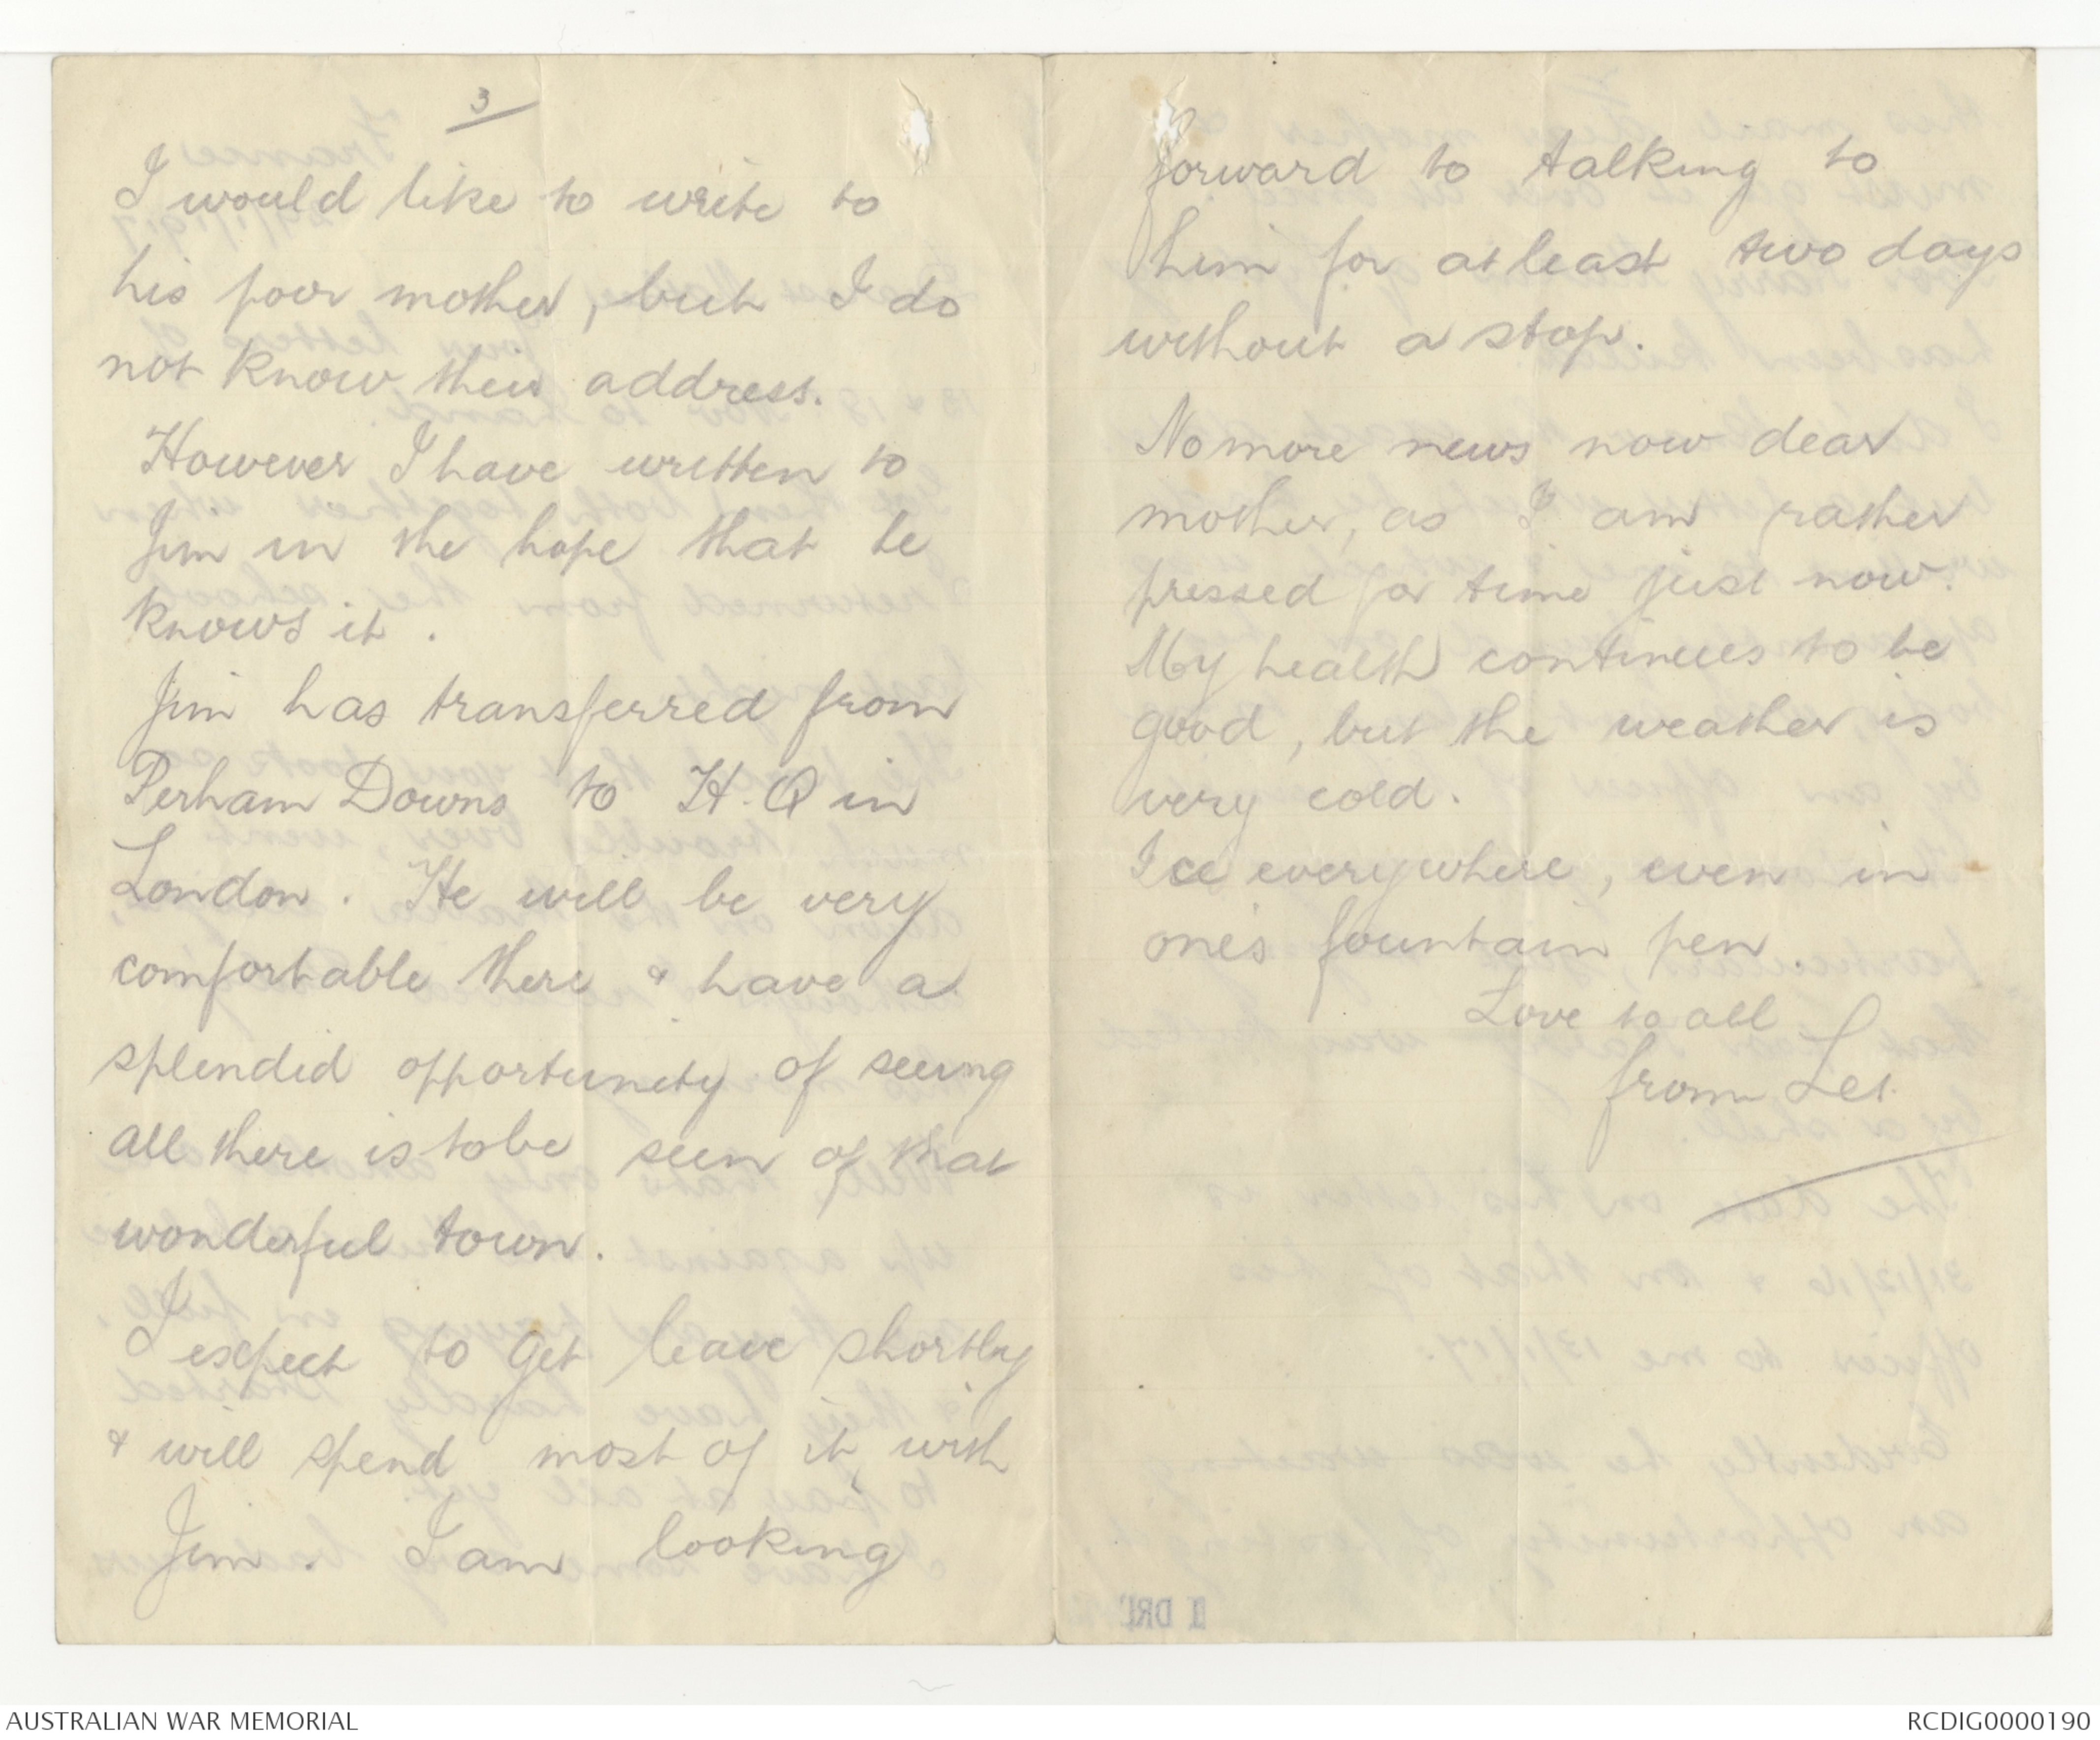 3
I would like to write to
his poor mother, but I do
not know their address.
However I have written to
Jim in the hope that he
knows it.
Jim has transferred from
Perham Downs to H.Q in
London. He will be very
comfortable there & have a
splendid opportunity of seeing
all there is to be seen of that
wonderful town.
I expect to get leave shortly
& will spend most of it with
Jim. I am looking
forward to talking to
him for at least two days
without a stop.
No more news now dear
mother, as I am rather
pressed for time just now.
My health continues to be
good, but the weather is
very cold.
Ice everywhere, even in
one's fountain pen.
Love to all
from Les.
AUSTRALIAN WAR MEMORIAL
RCDIG0000190